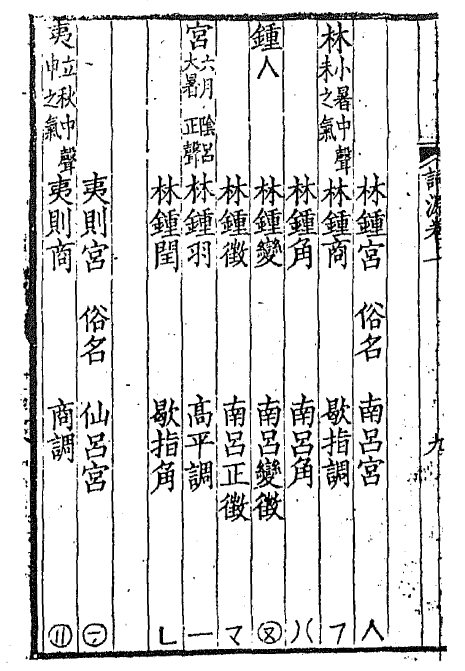 詞源卷一 九
林鍾宮 俗名 南呂宮 人
林 小暑中聲 未之氣 林鍾商 歇指調 フ
林鍾角 南呂角 八
鍾 人 林鍾變 南呂變徵
林鍾徵 南呂正徵 マ
宮 六月陰呂 大暑正聲 林鍾羽 高平調 一
林鍾閏 歇指角 ㄴ
夷則宮 俗名 仙呂宮
夷 立秋中聲 申之氣 夷則商 商調 ⑪